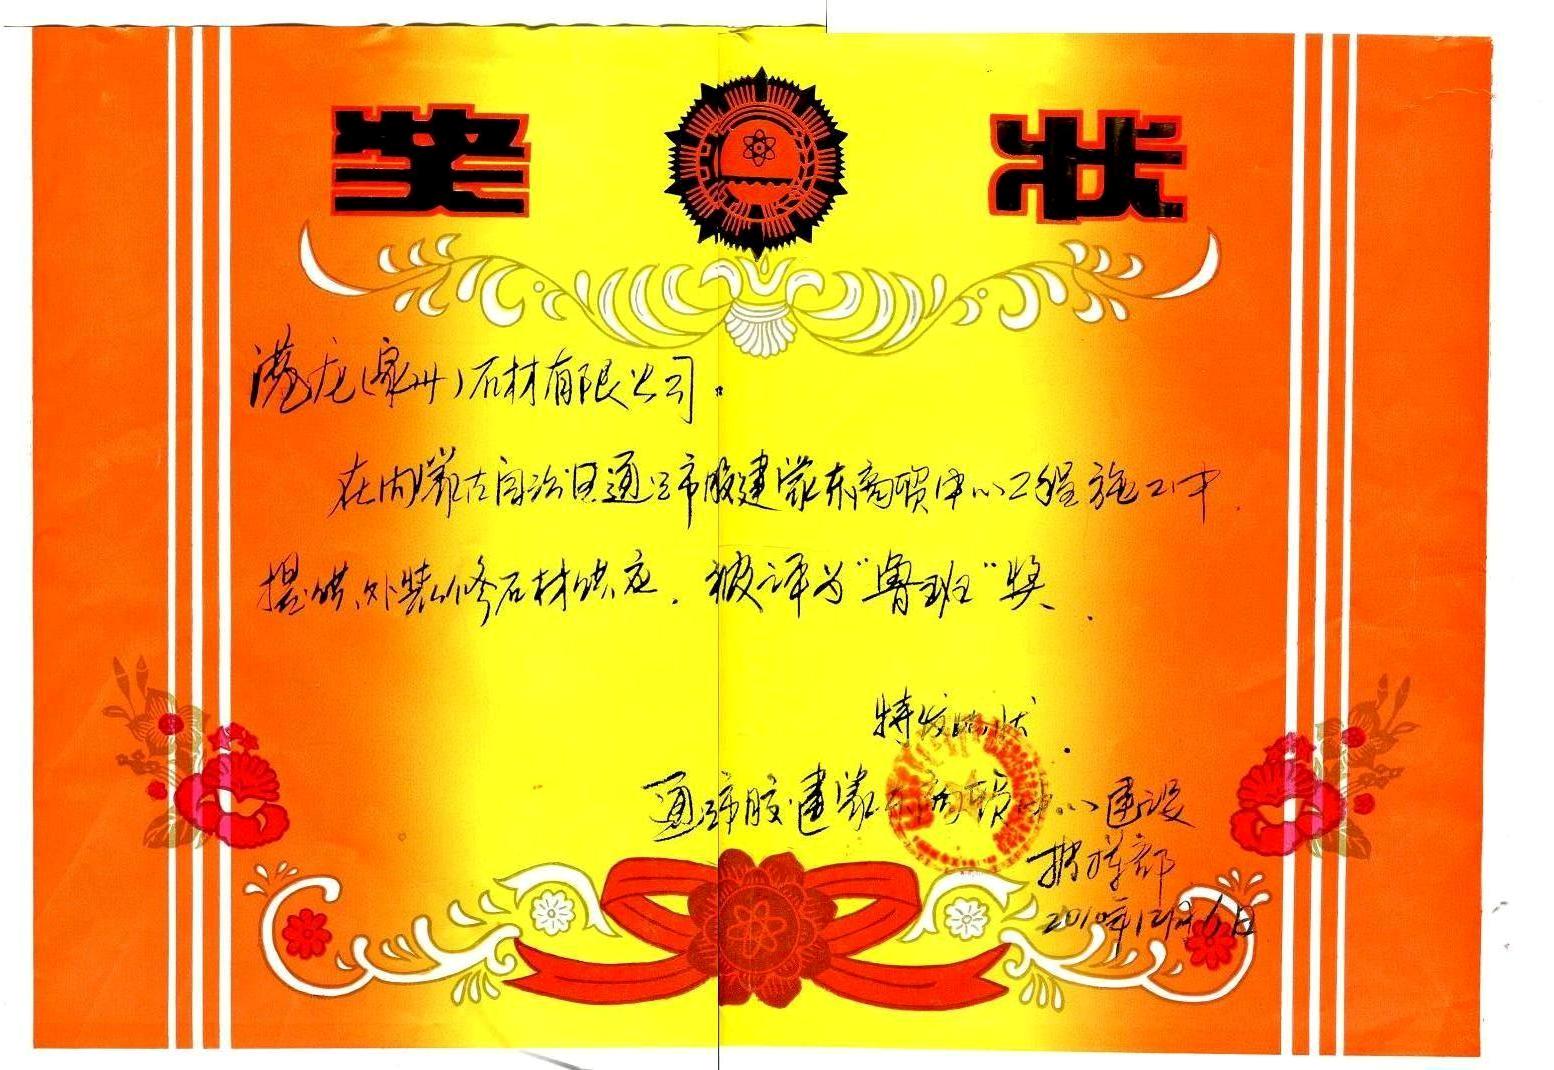 奖状
港龙(泉州)石材有限公司。
在内蒙古自治区通辽市胶建蒙东商贸中心工程施工中,
提供外装修石材供应,被评为"鲁班"奖.
特发此状.
通辽市胶建蒙东商贸中心建设
指挥部
2010年12月6日